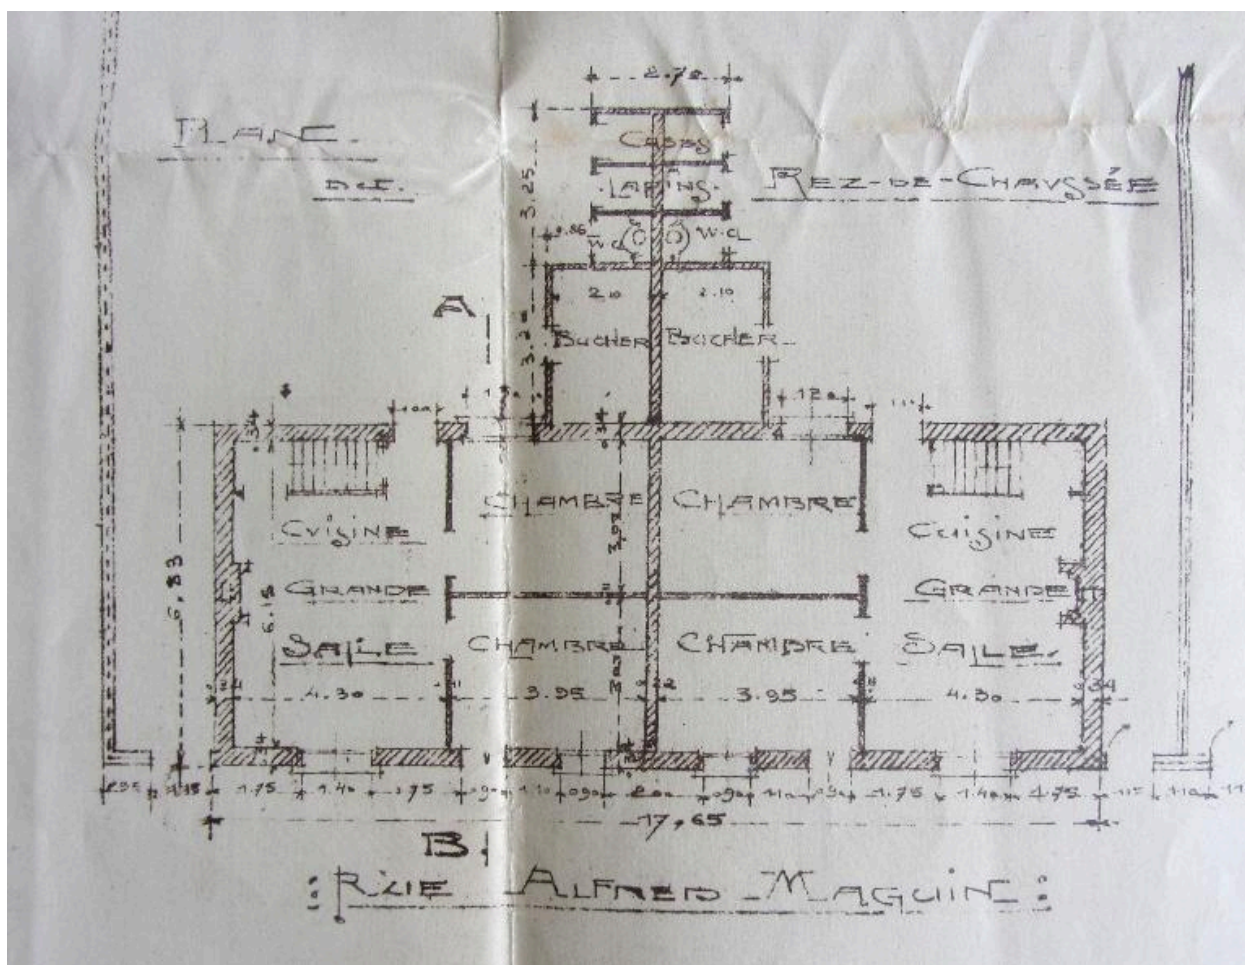 PLANC
DU
REZ-DE-CHAUSSÉE
2.70
CASES
LAPINS
3.25
0.86
W.C.
W.C.
2.10
2.10
A
BUCHER
BUCHER
1.20
CHAMBRE
CHAMBRE
CUISINE
CUISINE
3.02
6.83
6.15
GRANDE
GRANDE
SALLE
CHAMBRE
CHAMBRE
SALLE
4.30
3.95
3.95
4.30
1.75
1.40
1.75
0.90
1.10
0.90
2.00
0.90
1.10
0.90
1.75
1.40
1.75
1.15
1.10
17,65
B
RUE ALFRED-MAGUIN